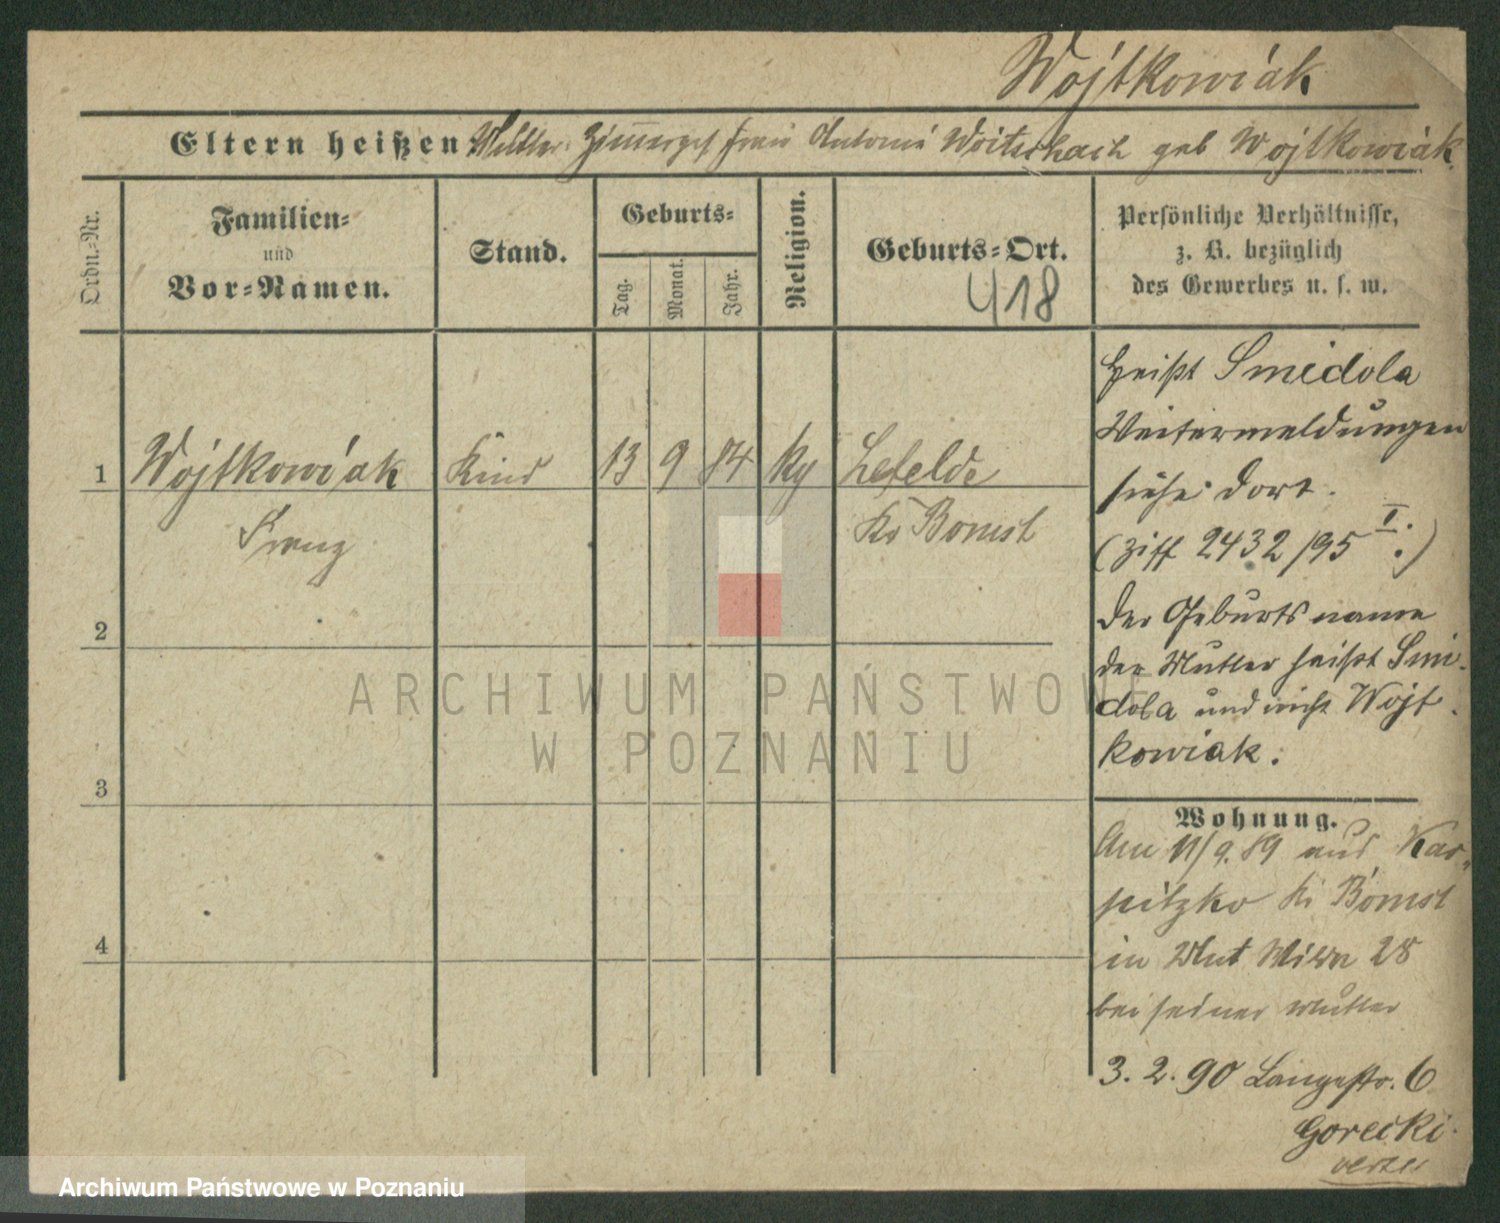 Wojtkowiak
Eltern heißen Mutter: Zimmerges Frau Antonie Woitschach geb Wojtkowiak
Ordn.-Nr.
Familien-
und
Vor-Namen.
Stand.
Geburts-
Tag.
Monat.
Jahr.
Religion.
Geburts-Ort.
418
Persönliche Verhältnisse,
z. B. bezüglich
des Gewerbes u. s. w.
1 Wojtkowiak Kind 13 9 84 kg Lefelde
Franz Kr Bomst
2
3
4
heißt Smidola
Weitermeldungen
siehe dort.
(Ziff 2432/95 I.)
Der Geburtsname
der Mutter heißt Smi-
dola und nicht Wojt-
kowiak.
Wohnung.
Am 11/9.89 aus Kar-
pitzko Kr Bomst
in Wut Wiesen 28
bei seiner Mutter
3.2.90 Langestr. 6
Gorecki.
ARCHIWUM PAŃSTWOWE
W POZNANIU
Archiwum Państwowe w Poznaniu